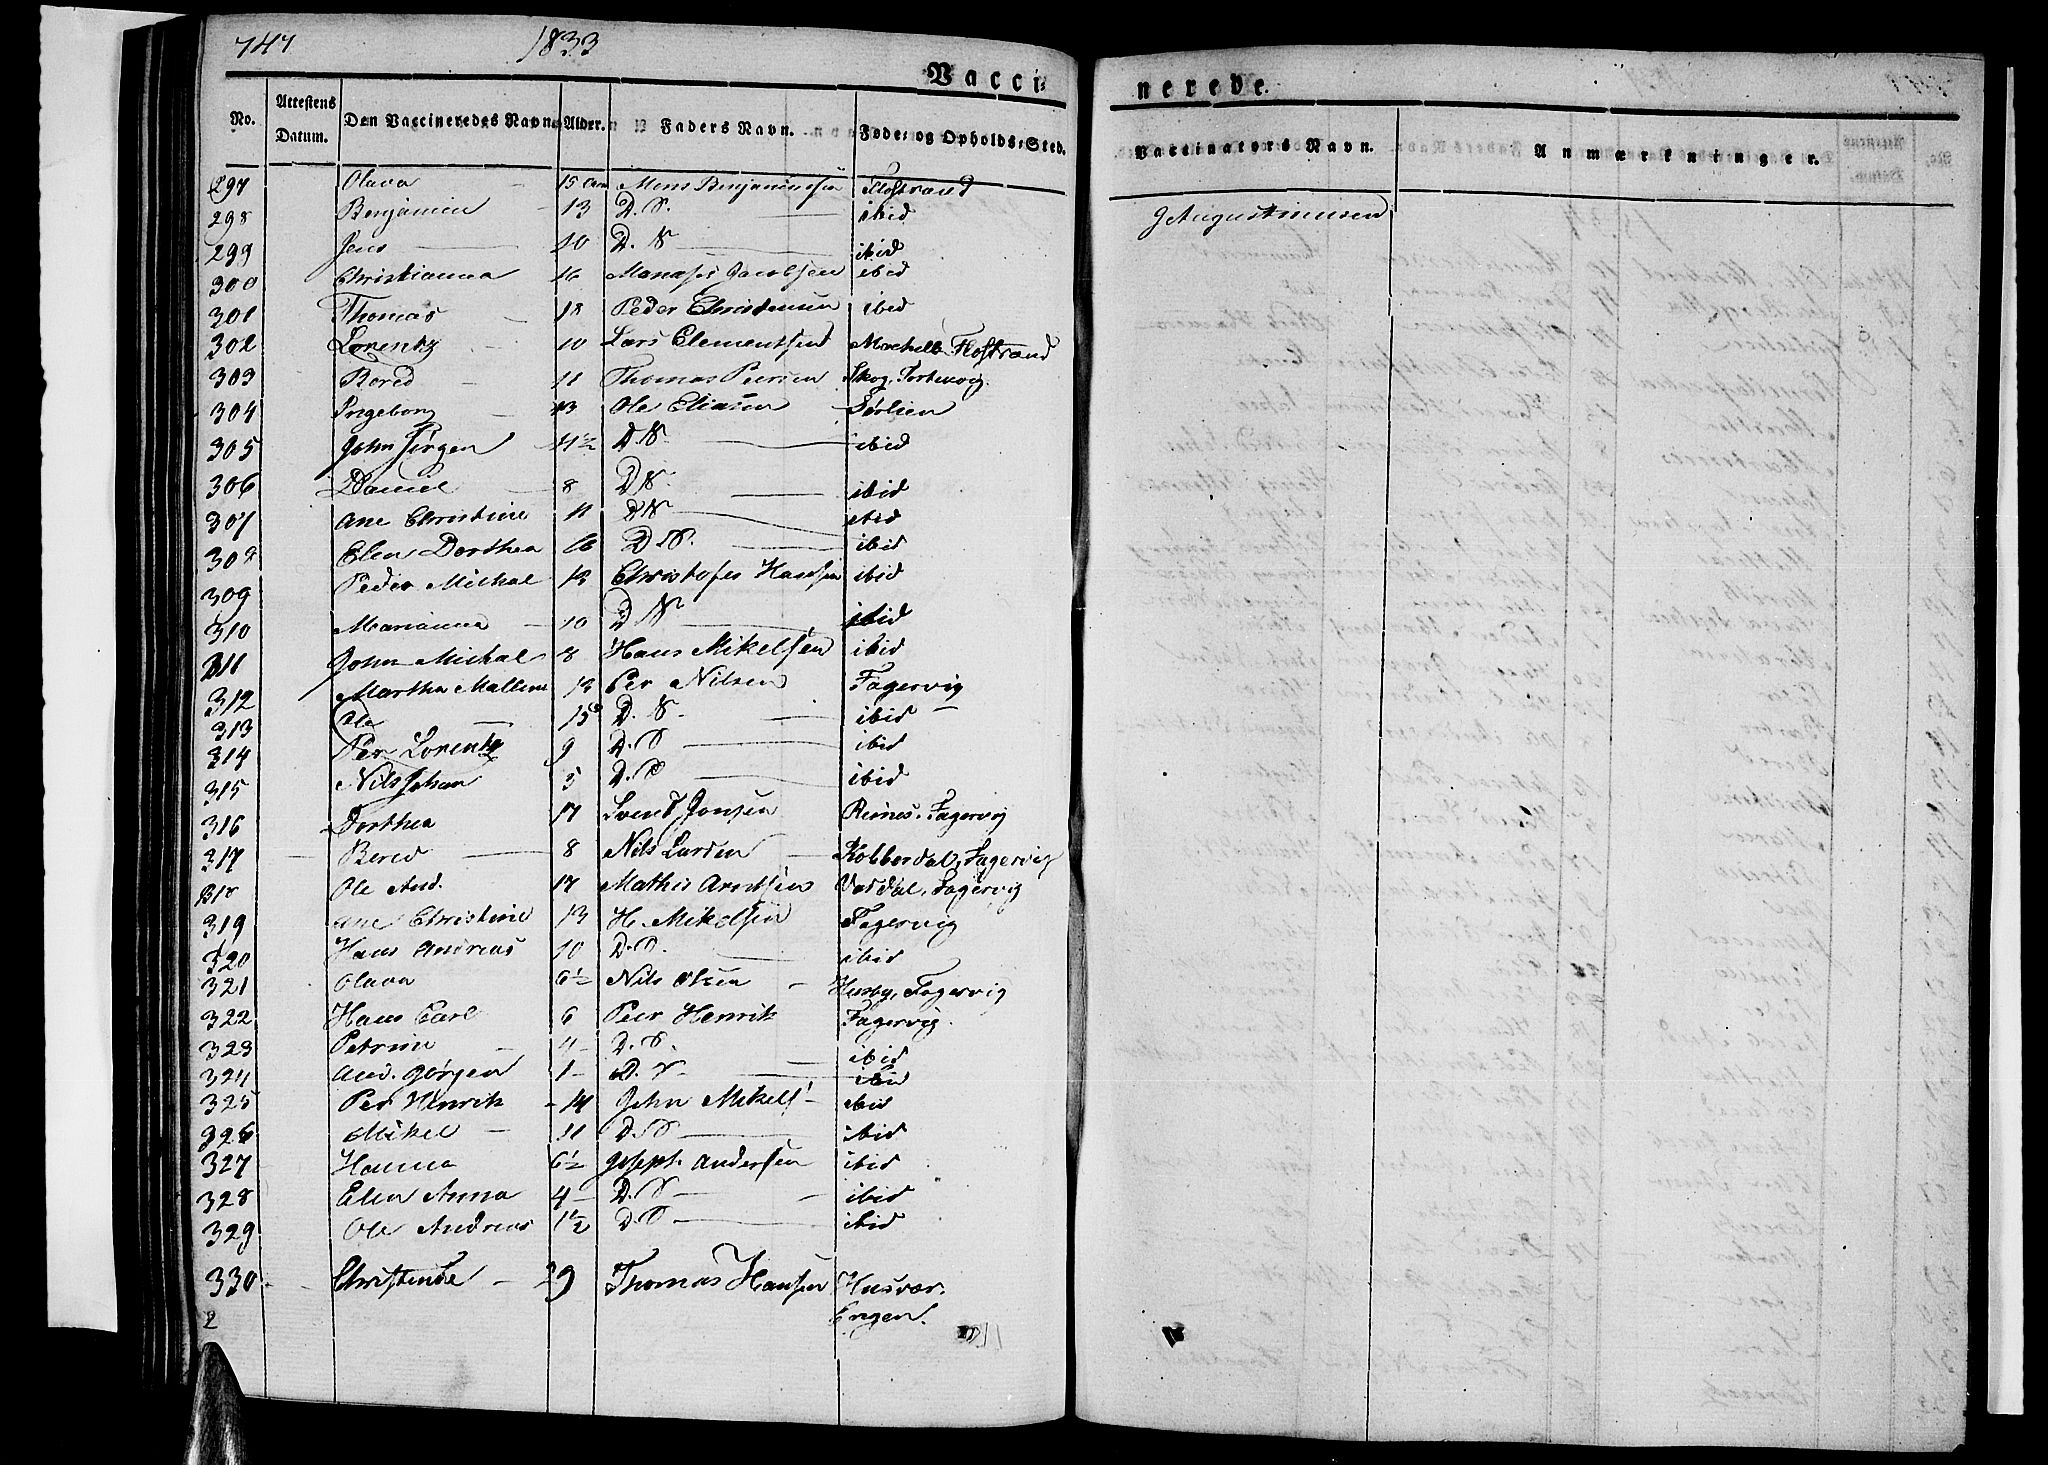 747 1833
Vacci= nerede.
No. Attestens Datum. Den Vaccineredes Navn. Alder. Faders Navn. Føde= og Opholds=Sted. Vaccinators Navn. Anmærkninger.
297 Olava 15 Mons Benjaminsen Flostrand
298 Benjamin 13 D. S. ibid G Augustinusen
299 Jens 10 D. S. ibid
300 Christianna 16 Manases Jacobsen ibid
301 Thomas 18 Peder Christensen ibid
302 Lorentz 10 Lars Clementsen Flostrand
303 Bered 11 Thomas Peersen Skog,
304 Ingeborg 13 Ole Eliasen Sørlien
305 John Jørgen 11½ D. S. ibid
306 Daniel 8 D. S. ibid
307 Ane Christine 11 D. S. ibid
308 Elen Dorthea 16 D. S. ibid
309 Peder Michal 13 Christofer Hansen ibid
310 Marianna 10 D. S. ibid
311 John Michal 8 Hans Mikelsen ibid
312 Martha Mallene 13 Per Nilsen Fagervig
313 Ole 15 D. S. ibid
314 Per Lorentz 9 D. S. ibid
315 Nils Johan 5 D. S. ibid
316 Dorthea 17 Svend Jonsen Reines, Fagervig
317 Bered 8 Nils Larsen Kobberdal, Fagervig
318 Ole And. 17 Mathis Arntsen Fagervig
319 Ane Christine 13 H. Mikelsen Fagervig
320 Hans Andreas 10 D. S. ibid
321 Olava 6½ Nils Olsen Husby, Fagervig
322 Hans Carl 6 Peer Henrik Fagervig.
323 Petrine 4 D. S. ibid
324 And. Jørgen 1 D. S. ibid
325 Per Henrik 14 John Mikels ibid
326 Mikel 11 D. S. ibid
327 Hanna 6½ Joseph Andersen ibid
328 Elen Anna 4 D. S. ibid
329 Ole Andreas 1½ D. S. ibid
330 29 Thomas Hansen Husvær.
2 Engen.